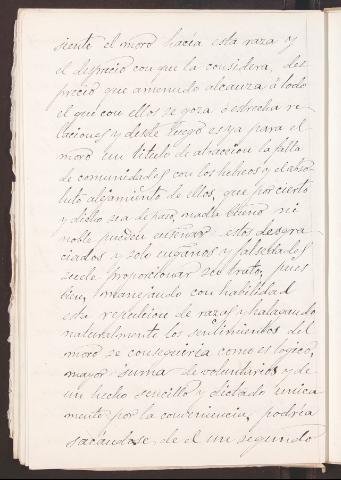 siente el moro hacia esta raza y
el desprecio con que la considera, des-
precio que amenudo alcanza á todo
el que con ellos se goza ó estrecha re-
laciones y desde luego es ya para el
moro un titulo de atraccion la falta
de comunidades con los hebreos y el abso-
luto alejamiento de ellos, que por cierto
y dicho sea de paso, nada bueno ni
noble pueden enseñar estos desgra-
ciados y solo engaños y falsedades
suele proporcionar su trato, pues
bien, manejando con habilidad
esta repulcion de razas y halagando
naturalmente los sentimientos del
moro se conseguiria como es logico,
mayor suma de voluntarios y de
un hecho sencillo y dictado unica
mente por la conveniencia, podria
sacándose de el un segundo